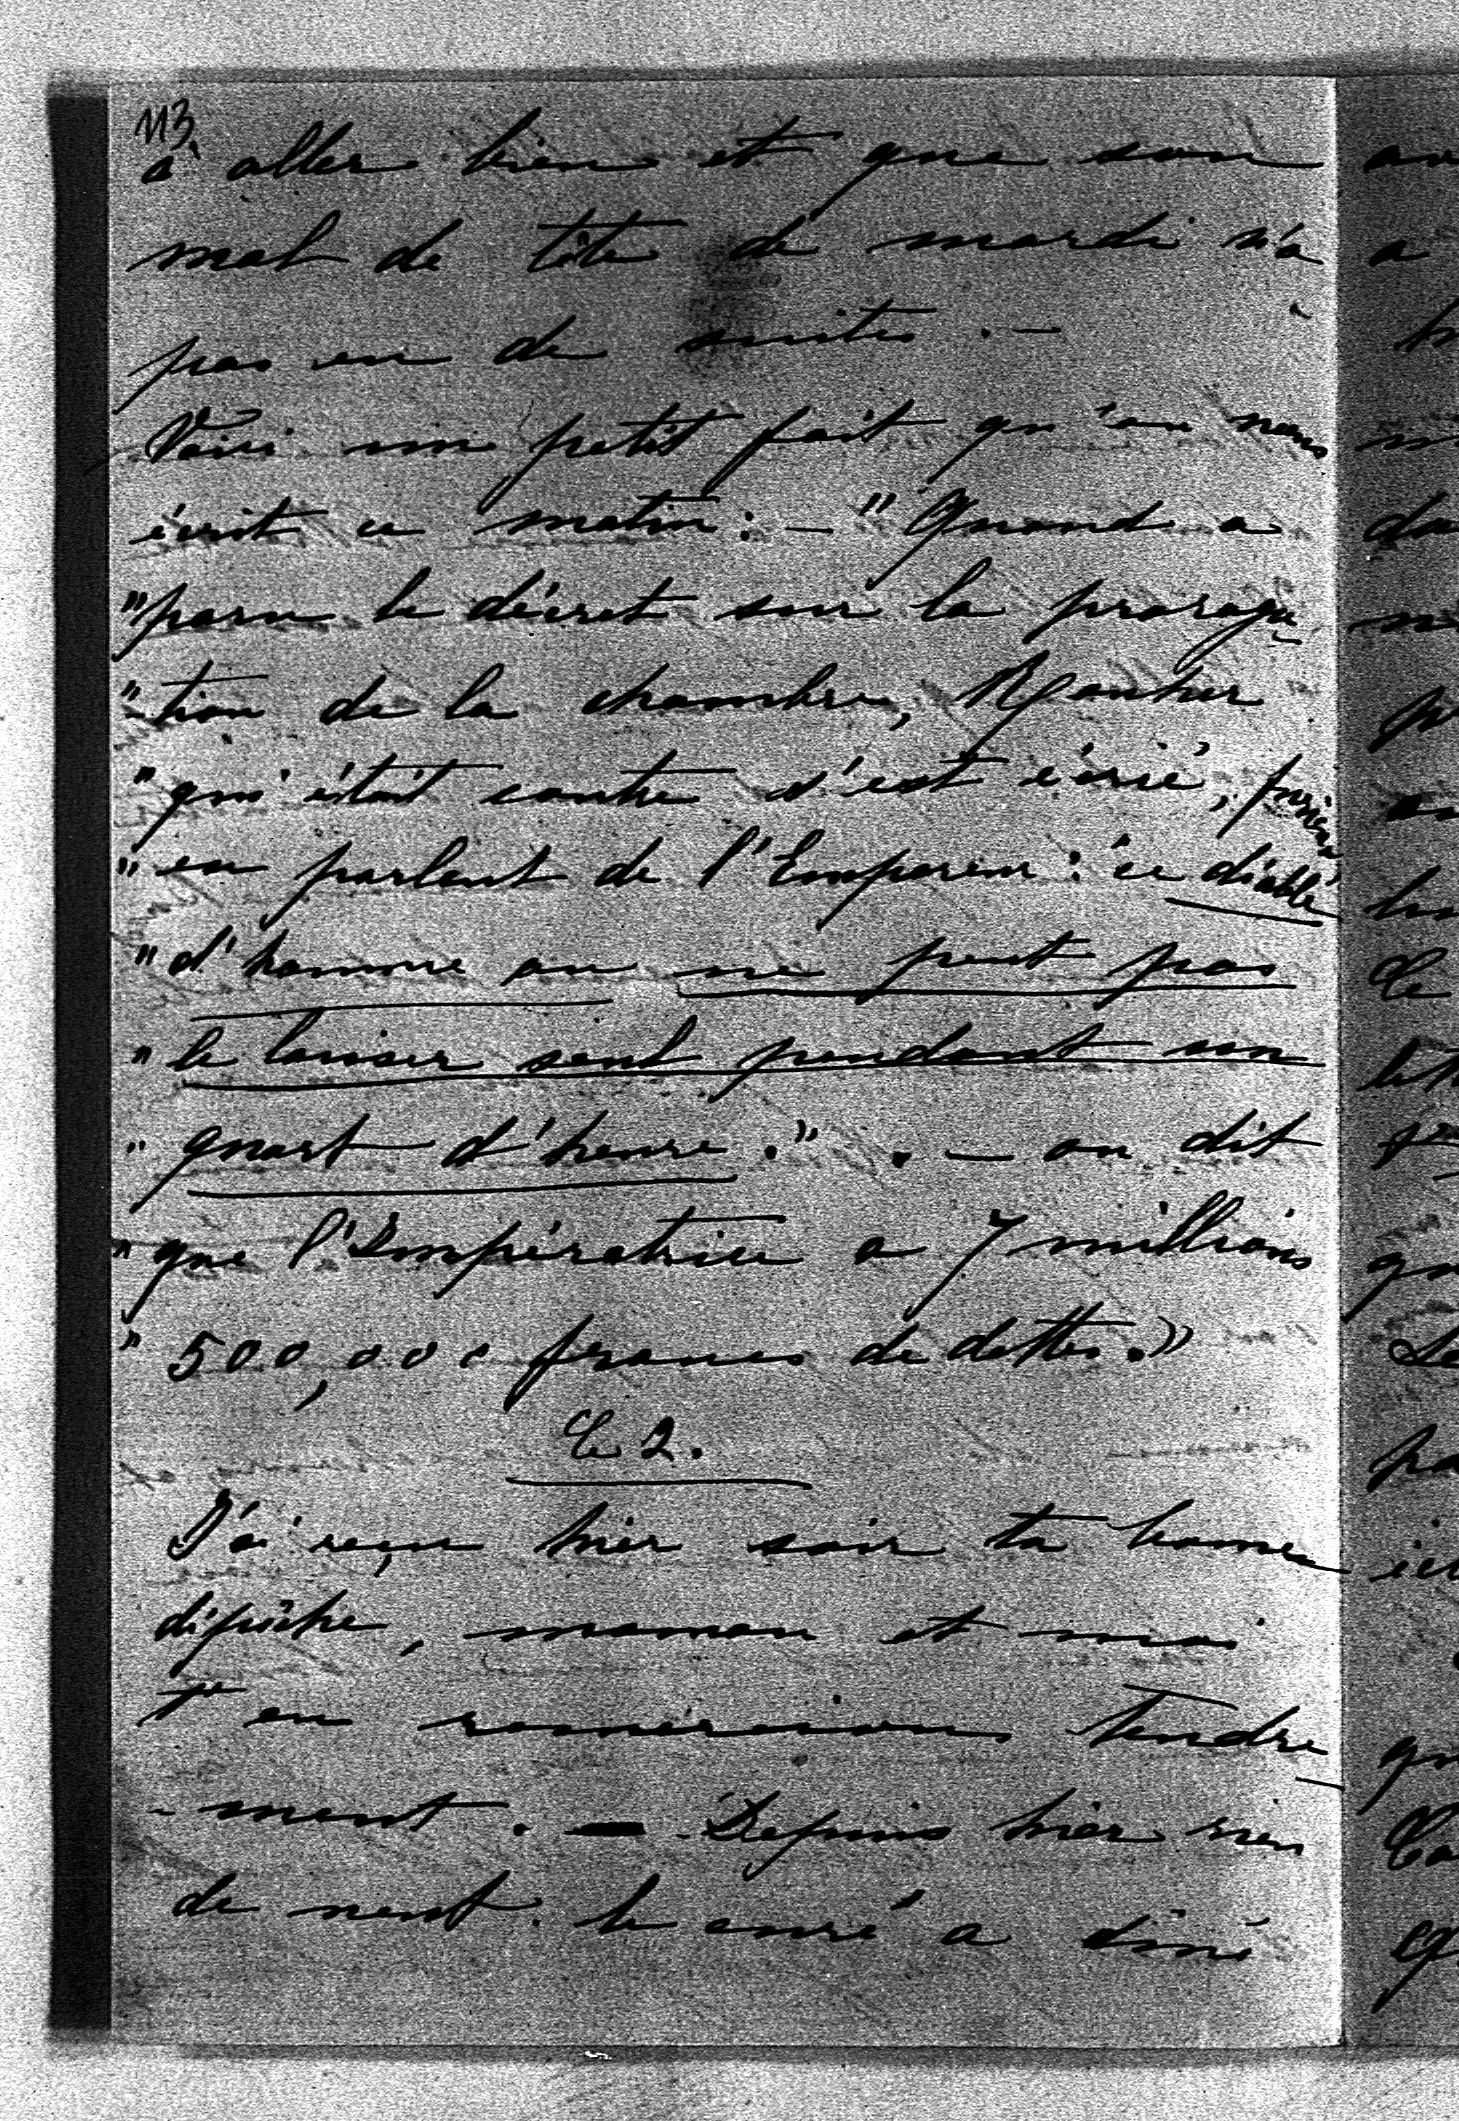 113
à aller bien et que son
mal de tête de mardi n'a
pas eu de suites. —
Voici un petit fait qu'on nous
écrit ce matin : — "Quand a
"paru le décret sur la proroga
"-tion de la chambre, Rouher
"qui était contre s'est écrié, furieux
"en parlant de l'Empereur : ce diable
"d'homme on ne peut pas
"le laisser seul pendant un
"quart d'heure." . — on dit
"que l'Impératrice a 7 millions
"500,000 francs de dettes."
Le 2.
J'ai reçu hier soir ta bonne
dépêche, maman et moi
t'en remercions tendre
-ment. — Depuis hier rien
de neuf. le curé a dîné